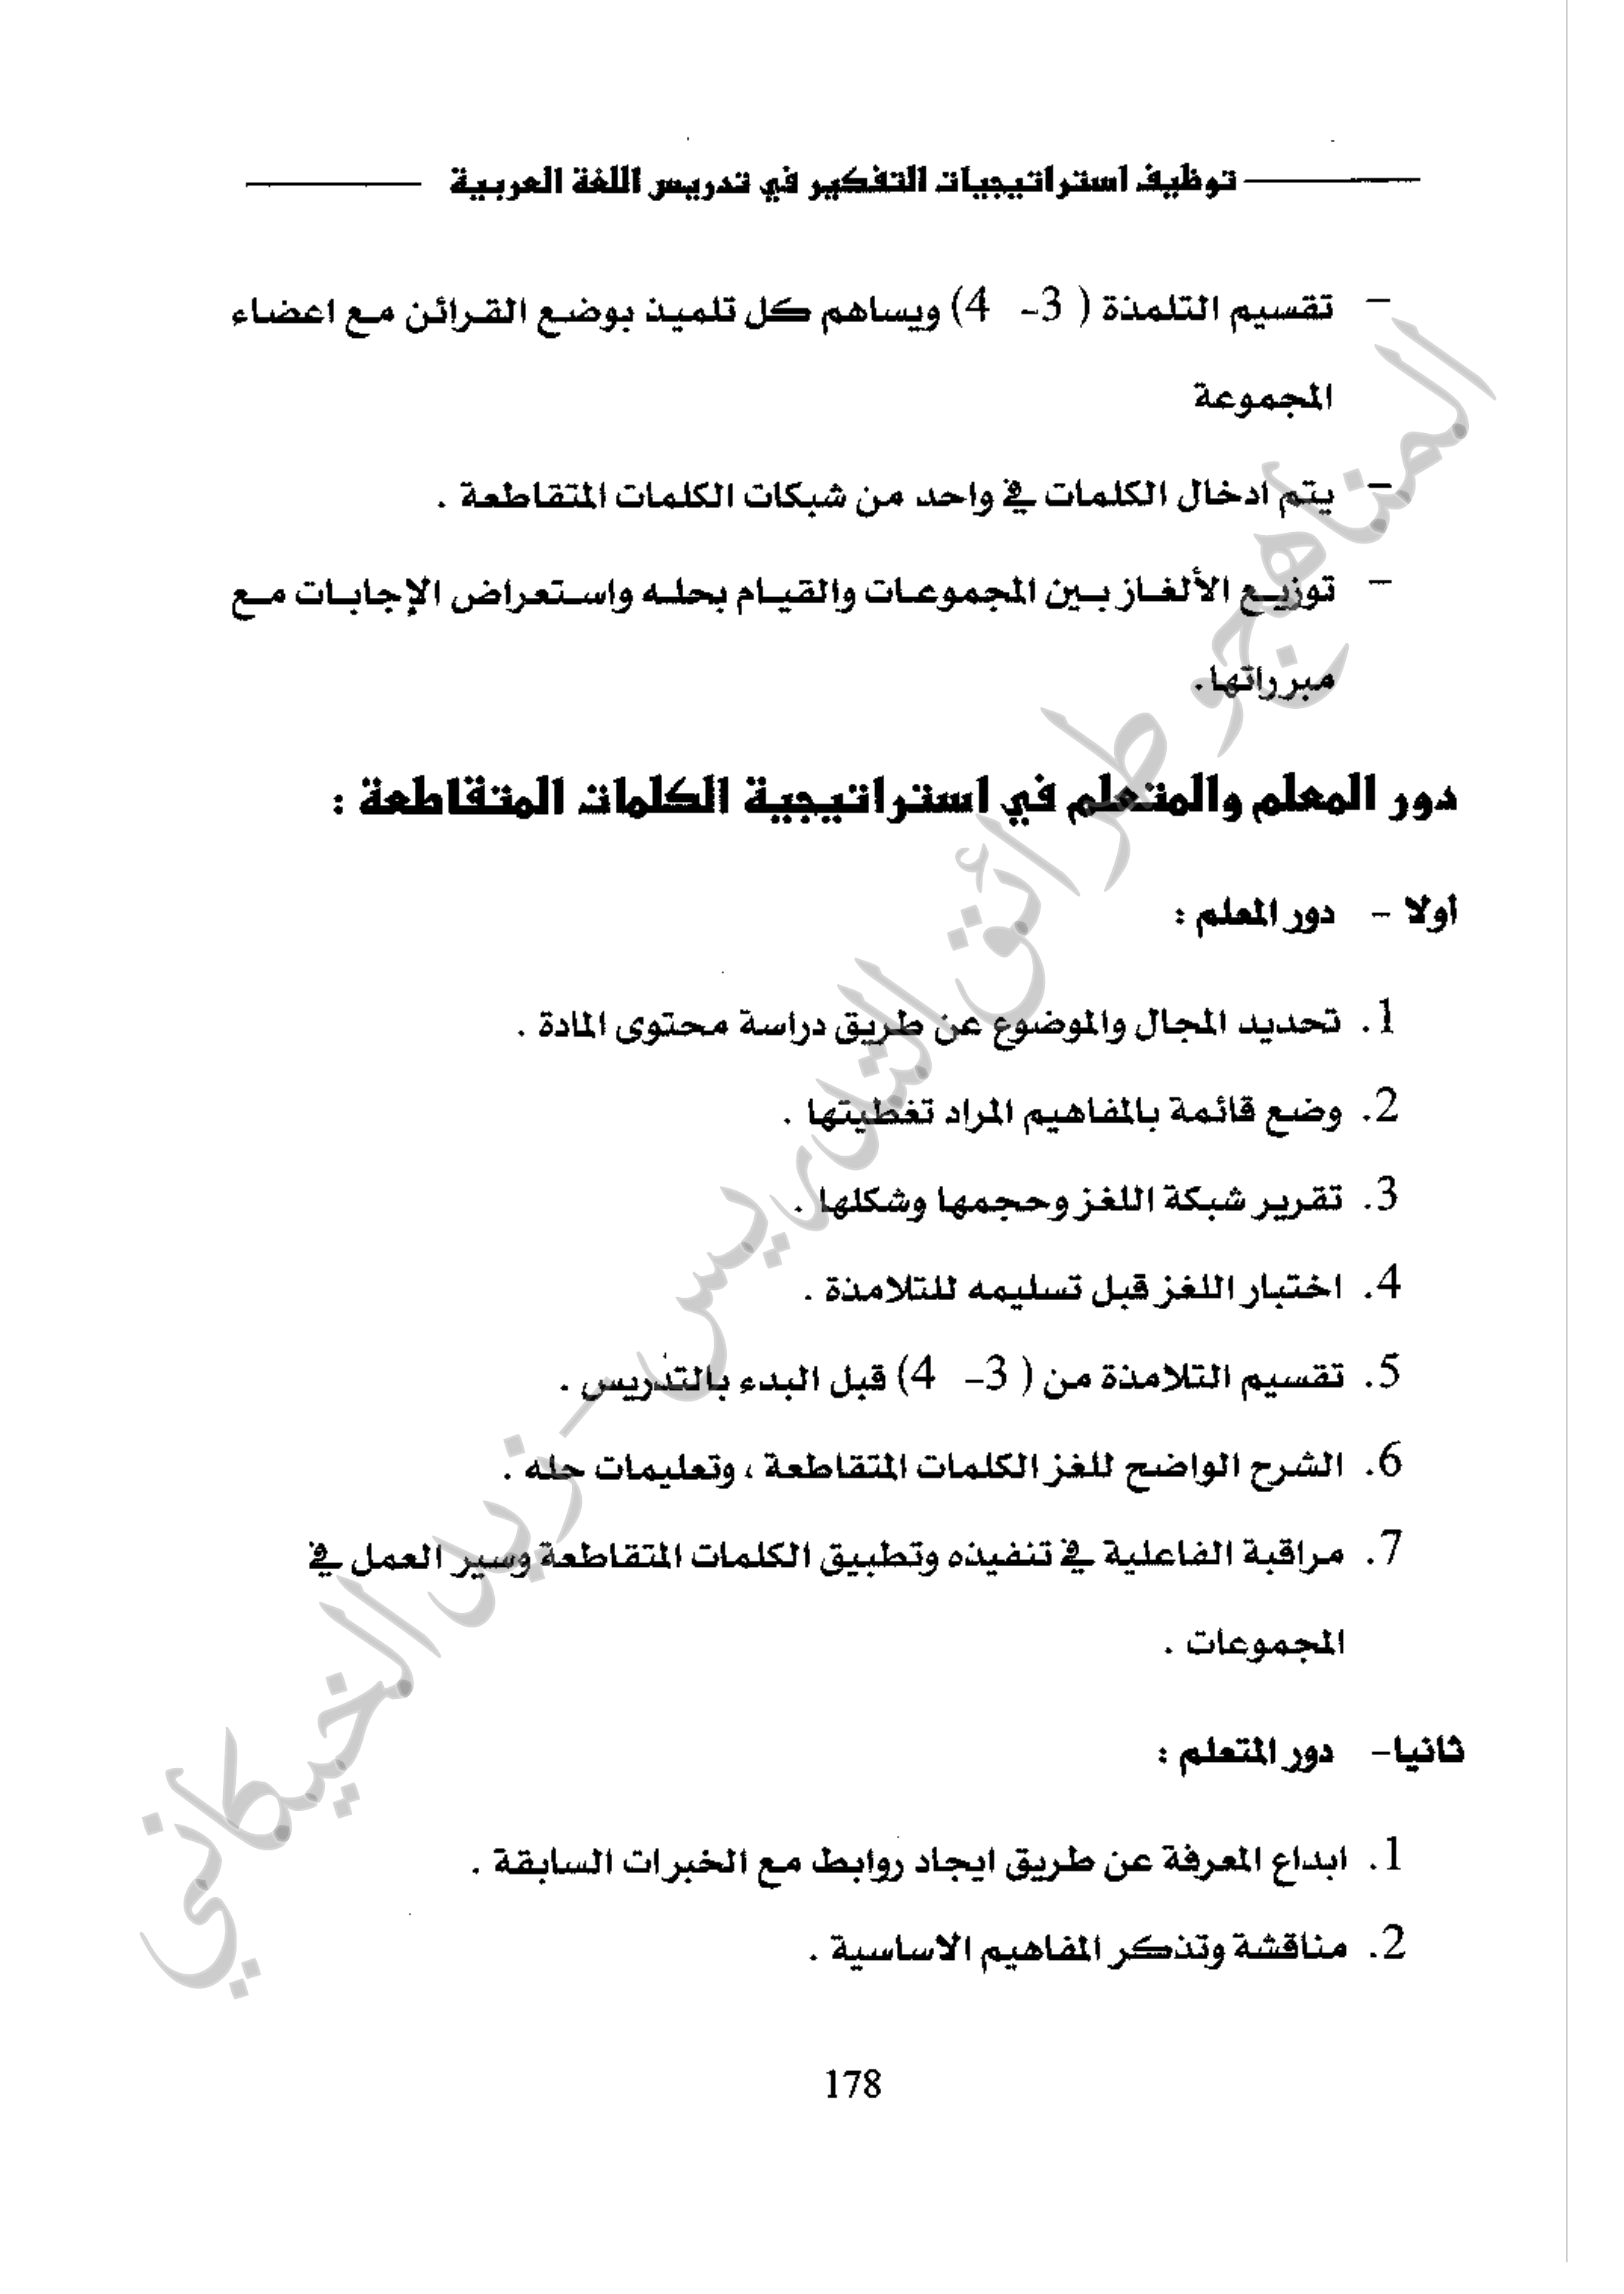 توظيف استراتيجيات التفكير في تدريس اللغة العربية
- تقسيم التلمذة ( 3- 4) ويساهم كل تلميذ بوضع القرائن مع اعضاء
المجموعة
- يتم ادخال الكلمات في واحد من شبكات الكلمات المتقاطعة .
- توزيع الألغاز بين المجموعات والقيام بحله واستعراض الإجابات مع
مبرراتها.
دور المعلم والمتعلم في استراتيجية الكلمات المتقاطعة :
اولا - دور المعلم :
1. تحديد المجال والموضوع عن طريق دراسة محتوى المادة .
2. وضع قائمة بالمفاهيم المراد تغطيتها .
3. تقرير شبكة اللغز وحجمها وشكلها .
4. اختبار اللغز قبل تسليمه للتلامذة .
5. تقسيم التلامذة من ( 3- 4) قبل البدء بالتدريس .
6. الشرح الواضح للغز الكلمات المتقاطعة ، وتعليمات حله .
7. مراقبة الفاعلية في تنفيذه وتطبيق الكلمات المتقاطعة وسير العمل في
المجموعات .
ثانيا- دور المتعلم :
1. ابداع المعرفة عن طريق ايجاد روابط مع الخبرات السابقة .
2. مناقشة وتذكر المفاهيم الاساسية .
178
المناهج وطرائق التدريس - زيد الخيكاني